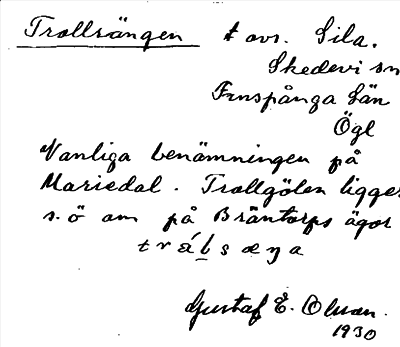 Trollsängen t ovs. Sila.
Skedevi sn
Finspånga Län
Ögl
Vanliga benämningen på
Mariedal. Trollgölen ligger
s.ö om på Bräntorps ägor
Gustaf E. Olsson.
1930